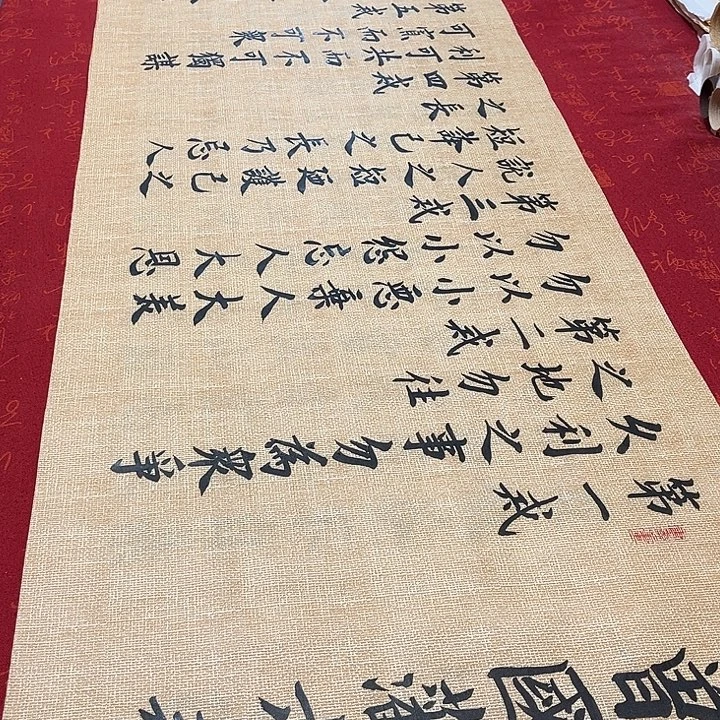 曾國藩六戒
第一戒
久利之事勿為衆爭
之地勿往
第二戒
勿以小惡棄人大義
勿以小怨忘人大恩
第三戒
說人之短廼護己之
短誇己之長乃忌人
之長
第四戒
利可共而不可獨謀
可寡而不可衆
第五戒